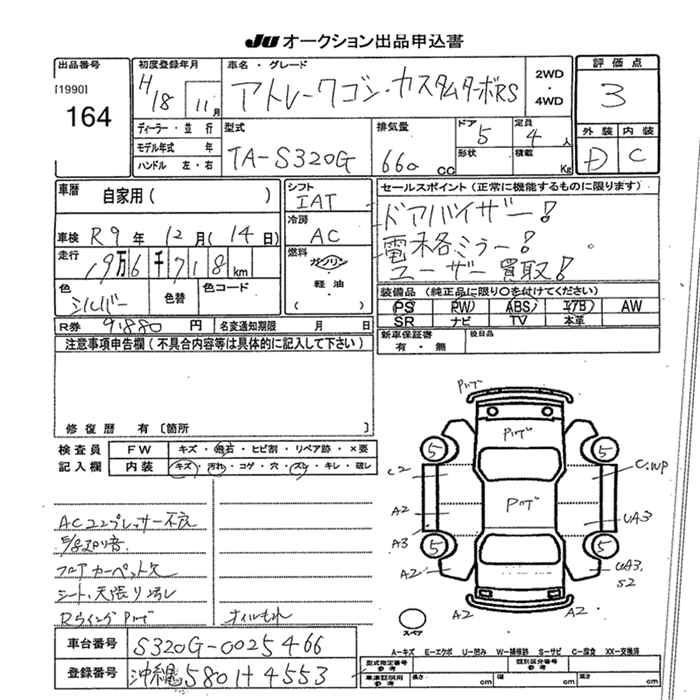 JU オークション出品申込書
出品番号 [1990] 164
初度登録年月 H18 11月
車名・グレード アトレーワゴン・カスタムターボRS
2WD ・ 4WD
評価点 3
外装 D 内装 C
ディーラー・並行
モデル年式 年
ハンドル 左・右
型式 TA-S320G
排気量 660 cc
ドア 5 形状
定員 4人 積載 Kg
車歴 自家用( )
シフト IAT
セールスポイント(正常に機能するものに限ります)
ドアバイザー!
電格ミラー!
ユーザー買取!
車検 R9年 12月(14日)
冷房 AC
走行 19万6千718km
燃料 ガソリン・軽油・
色 シルバー 色替 色コード
装備品(純正品に限り○を付けてください)
PS PW ABS エアB AW
SR ナビ TV 本革
R券 9,880 円 名変通知期限 月 日
新車保証書 有・無 後日品
注意事項申告欄(不具合内容等は具体的に記入して下さい)
修復歴 有(箇所
検査員記入欄
FW キズ・飛石・ヒビ割・リペア跡・×要
内装 キズ・汚れ・コゲ・穴・スレ・キレ・破レ
ACコンプレッサー不良
フロアカーペット欠
シート、天張り汚れ
オイルもれ
5 5 5 5
C2 C.WP
A2 UA3
A3
A2 UA3.S2
A2 A2
スペア
A-キズ E-エクボ U-凹み W-補修跡 S-サビ C-腐食 XX-交換済
車台番号 S320G-0025466
登録番号 沖縄 580 H 4553
型式指定番号 参考 類別区分番号 参考
車庫証明用 参考 長さ cm 幅 cm 高さ cm